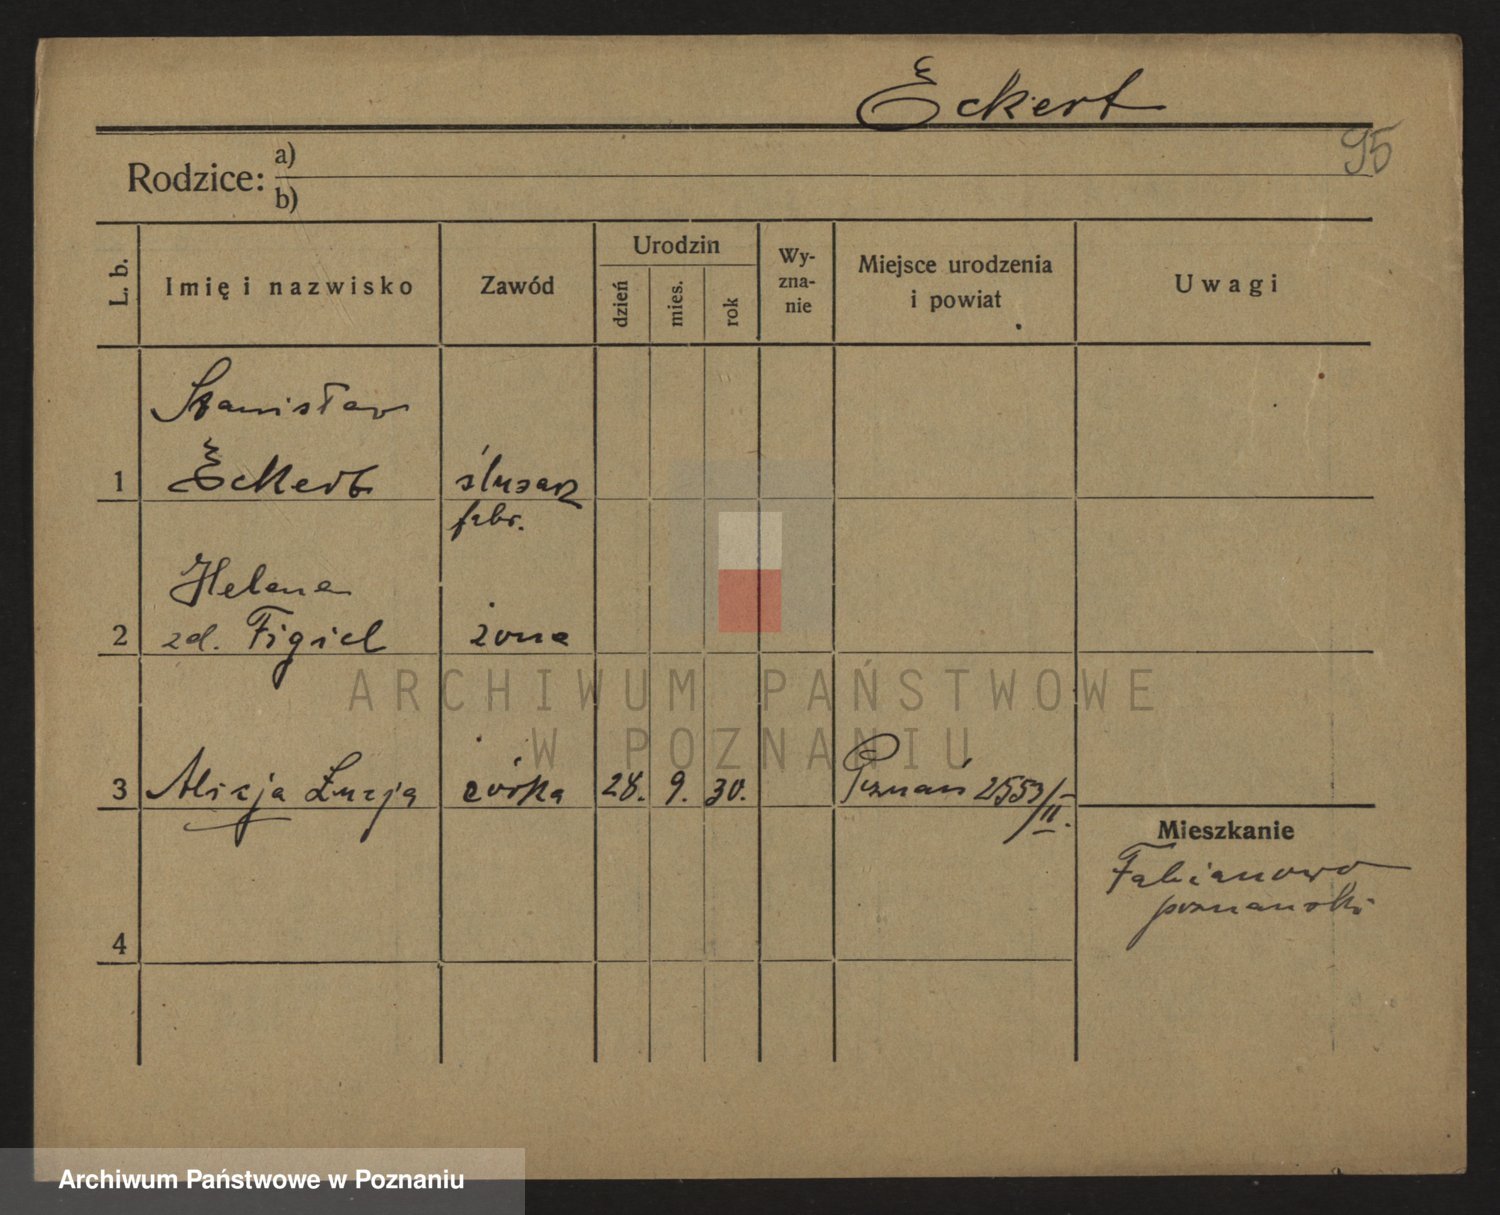 Eckert
95
Rodzice: a)
b)
L. b.
Imię i nazwisko
Zawód
Urodzin
dzień
mies.
rok
Wy-
zna-
nie
Miejsce urodzenia
i powiat
Uwagi
Stanisław
1 Eckert ślusarz
fabr.
Helena
2 zd. Figiel żona
ARCHIWUM PAŃSTWOWE
W POZNANIU
3 Alicja Łucja córka 28. 9. 30. Poznań 2553/II.
Mieszkanie
Fabianowo
poznański
4
Archiwum Państwowe w Poznaniu